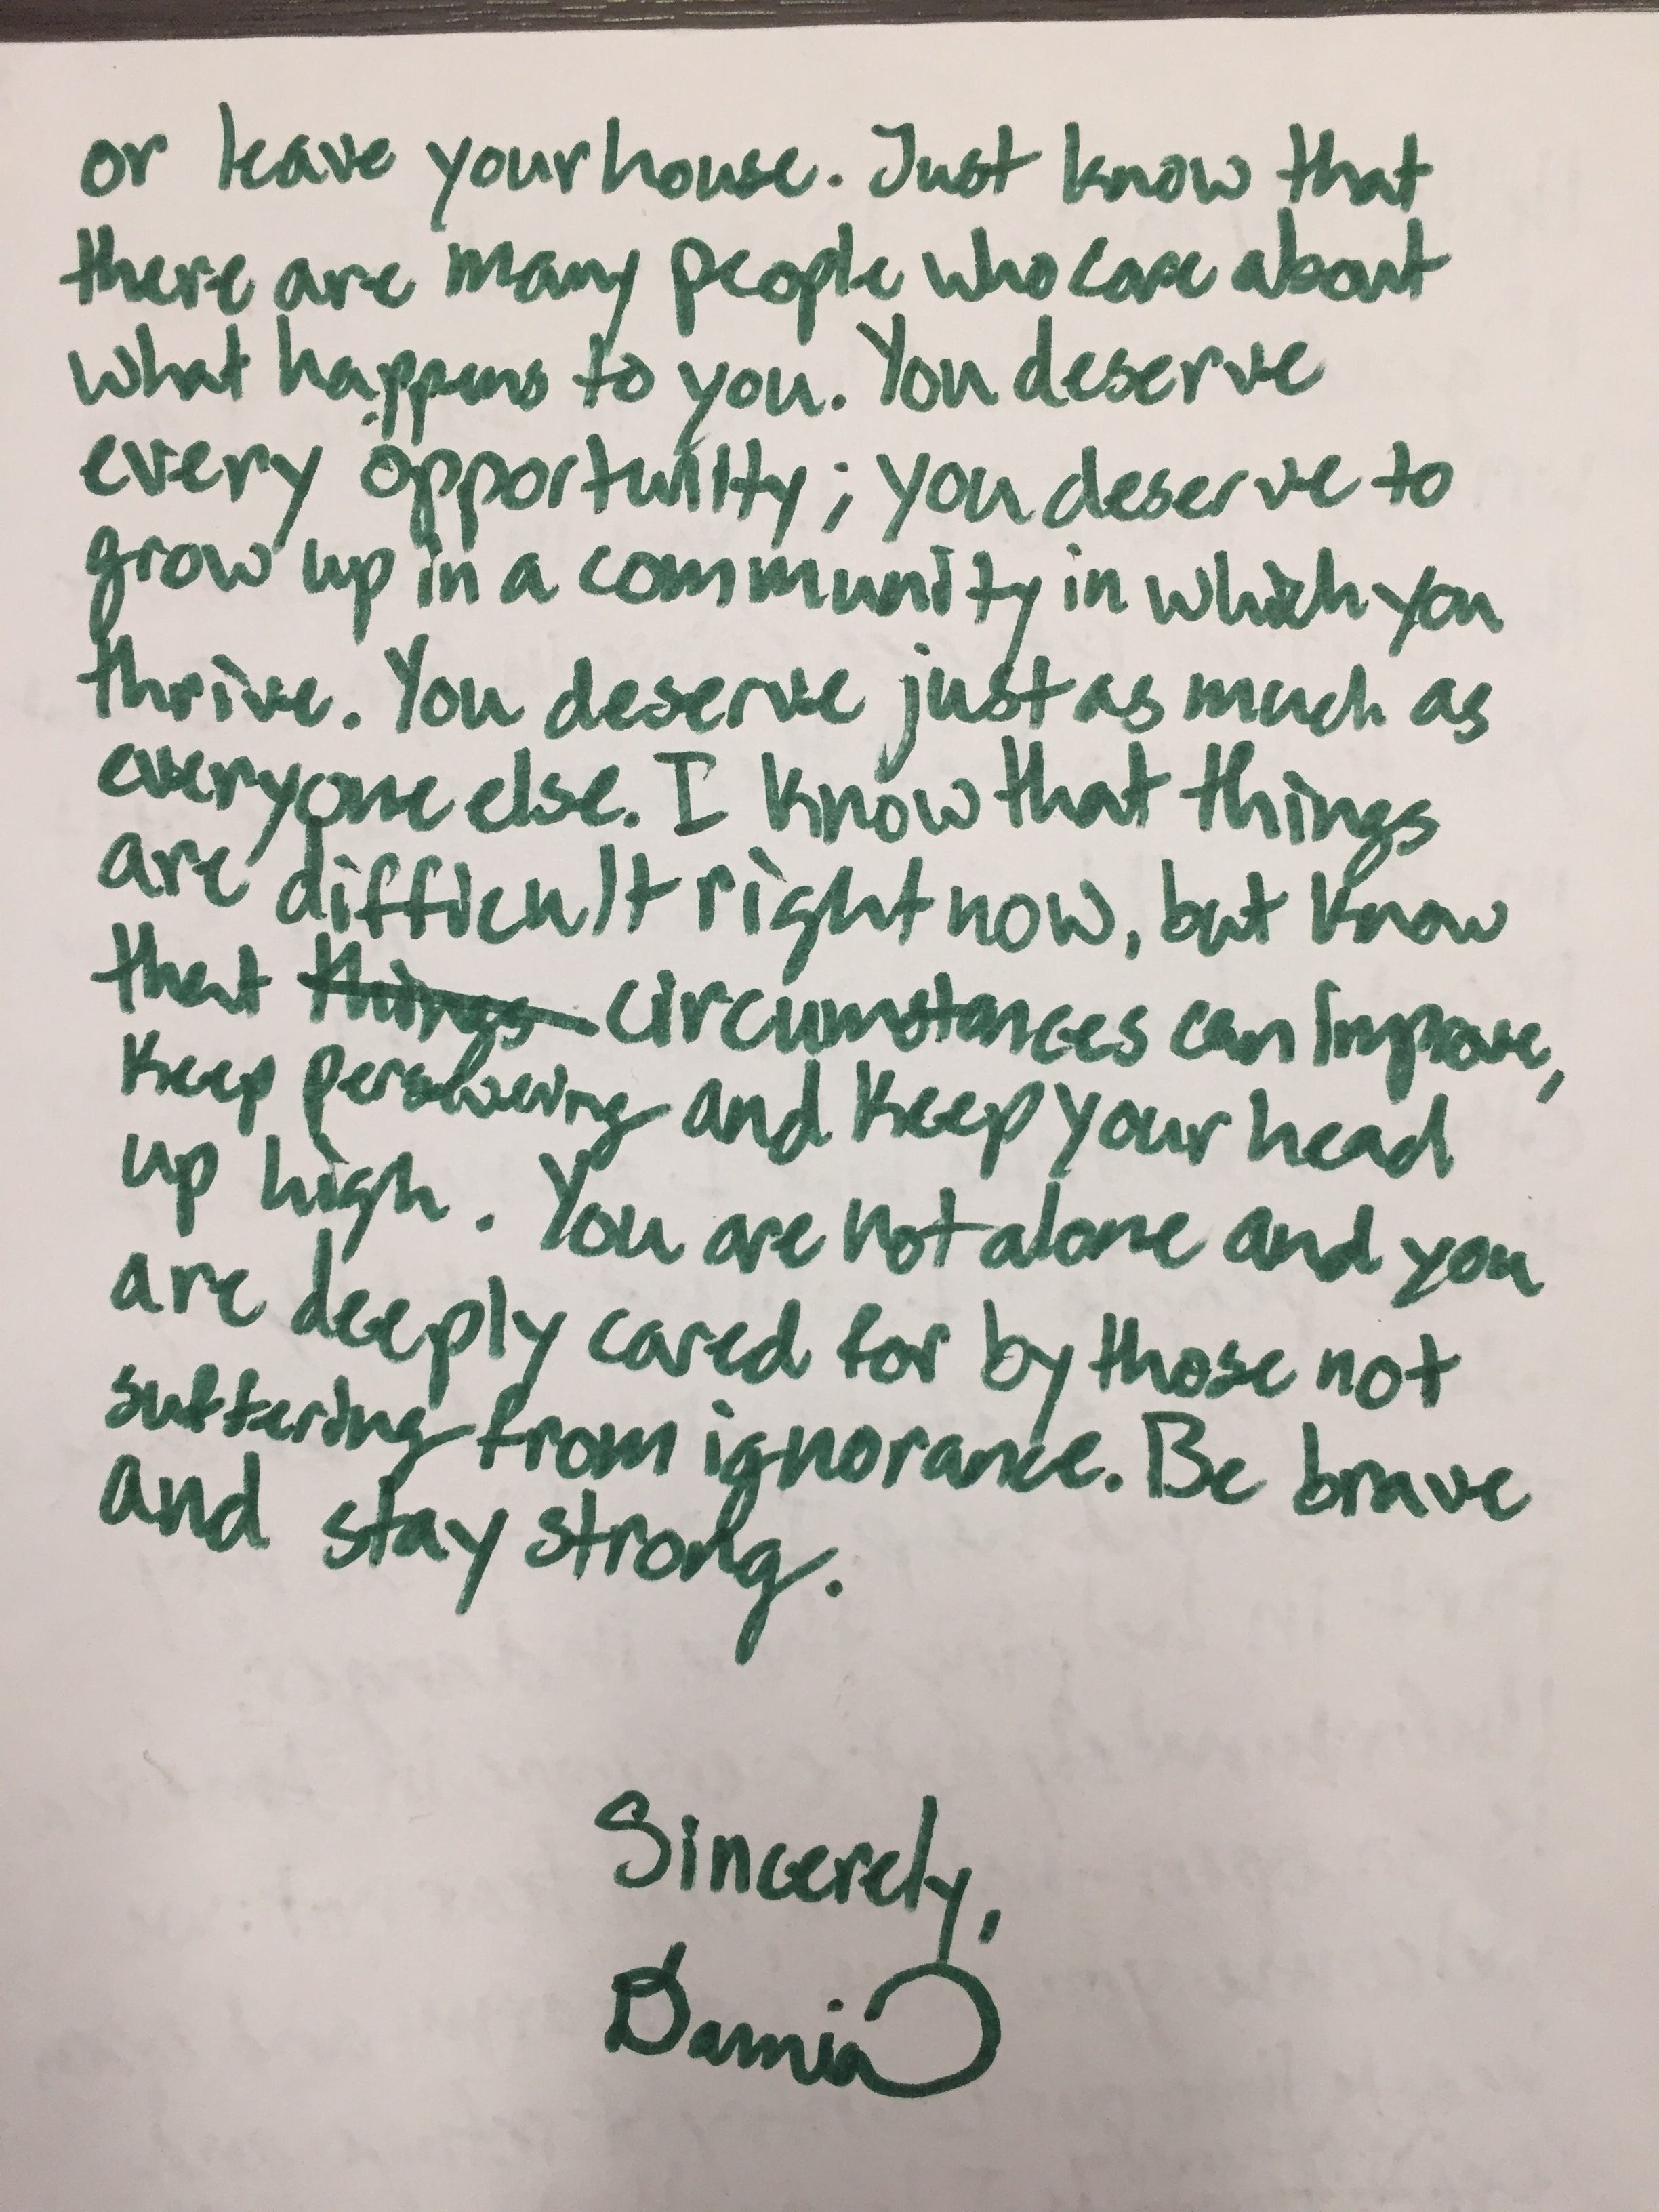 or leave your house. Just know that
there are many people who care about
what happens to you. You deserve
every opportunity; you deserve to
grow up in a community in which you
thrive. You deserve just as much as
everyone else. I know that things
are difficult right now, but know
that things circumstances can improve,
keep persevering and keep your head
up high. You are not alone and you
are deeply cared for by those not
suffering from ignorance. Be brave
and stay strong.
Sincerely,
Damia